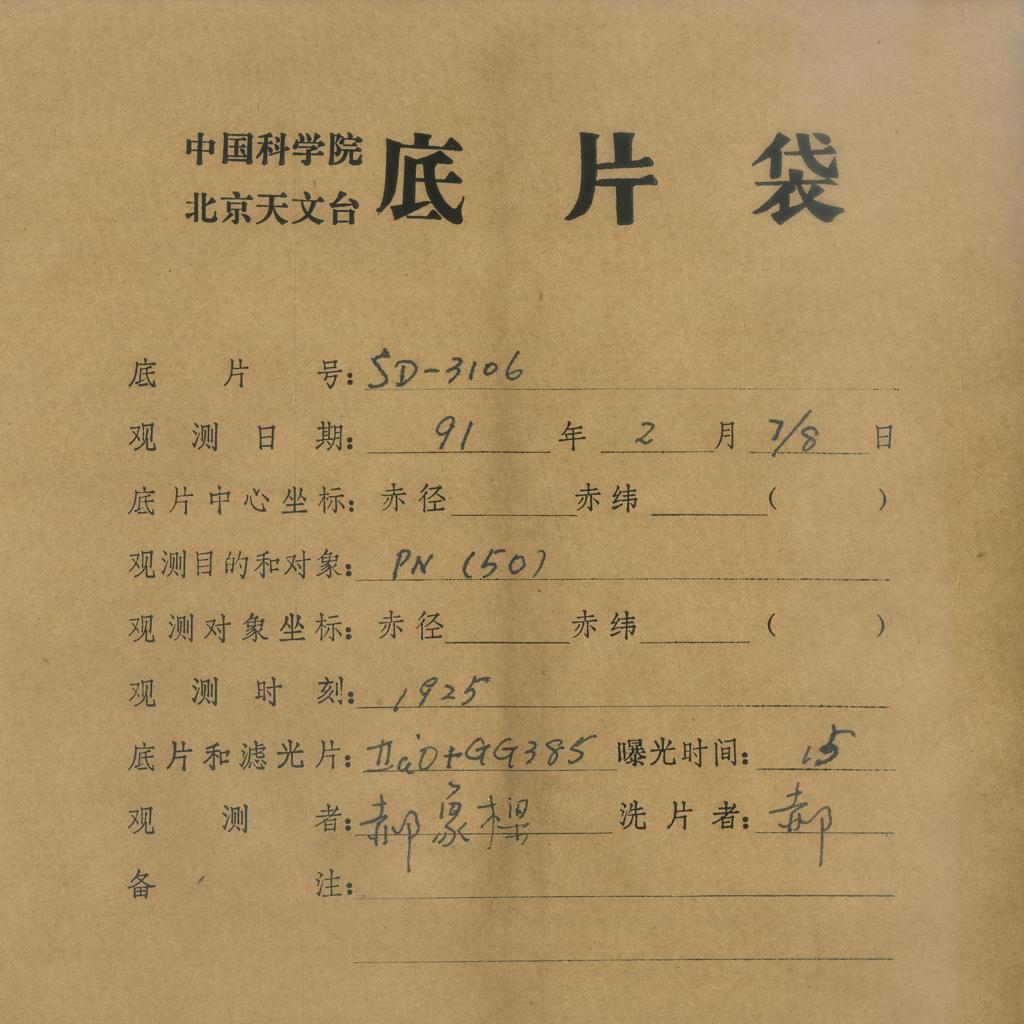 中国科学院
北京天文台
底片袋
底片号: SD-3106
观测日期: 91年 2月 7/8日
底片中心坐标: 赤径 赤纬 ( )
观测目的和对象: PN (50)
观测对象坐标: 赤径 赤纬 ( )
观测时刻: 1925
底片和滤光片: IIaO+GG385 曝光时间: 15
观测者: 郝象樑 洗片者: 郝
备注: